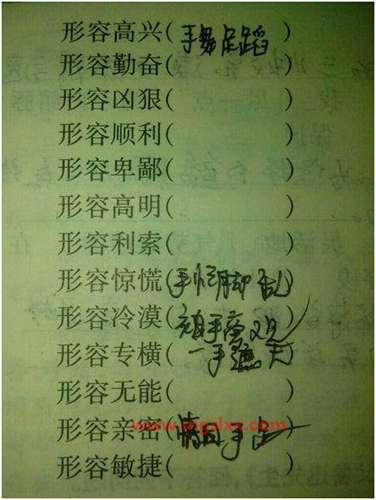 形容高兴(手舞足蹈)
形容勤奋( )
形容凶狠( )
形容顺利( )
形容卑鄙( )
形容高明( )
形容利索( )
形容惊慌(手忙脚乱)
形容冷漠(袖手旁观)
形容专横(一手遮天)
形容无能( )
形容亲密(情同手足)
形容敏捷( )